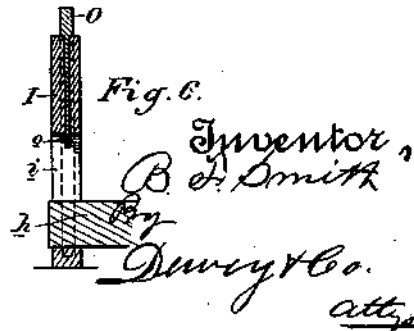 O
I
Fig. 6.
e
i
h
Inventor,
B. F. Smith
By
Dewey & Co.
Attys